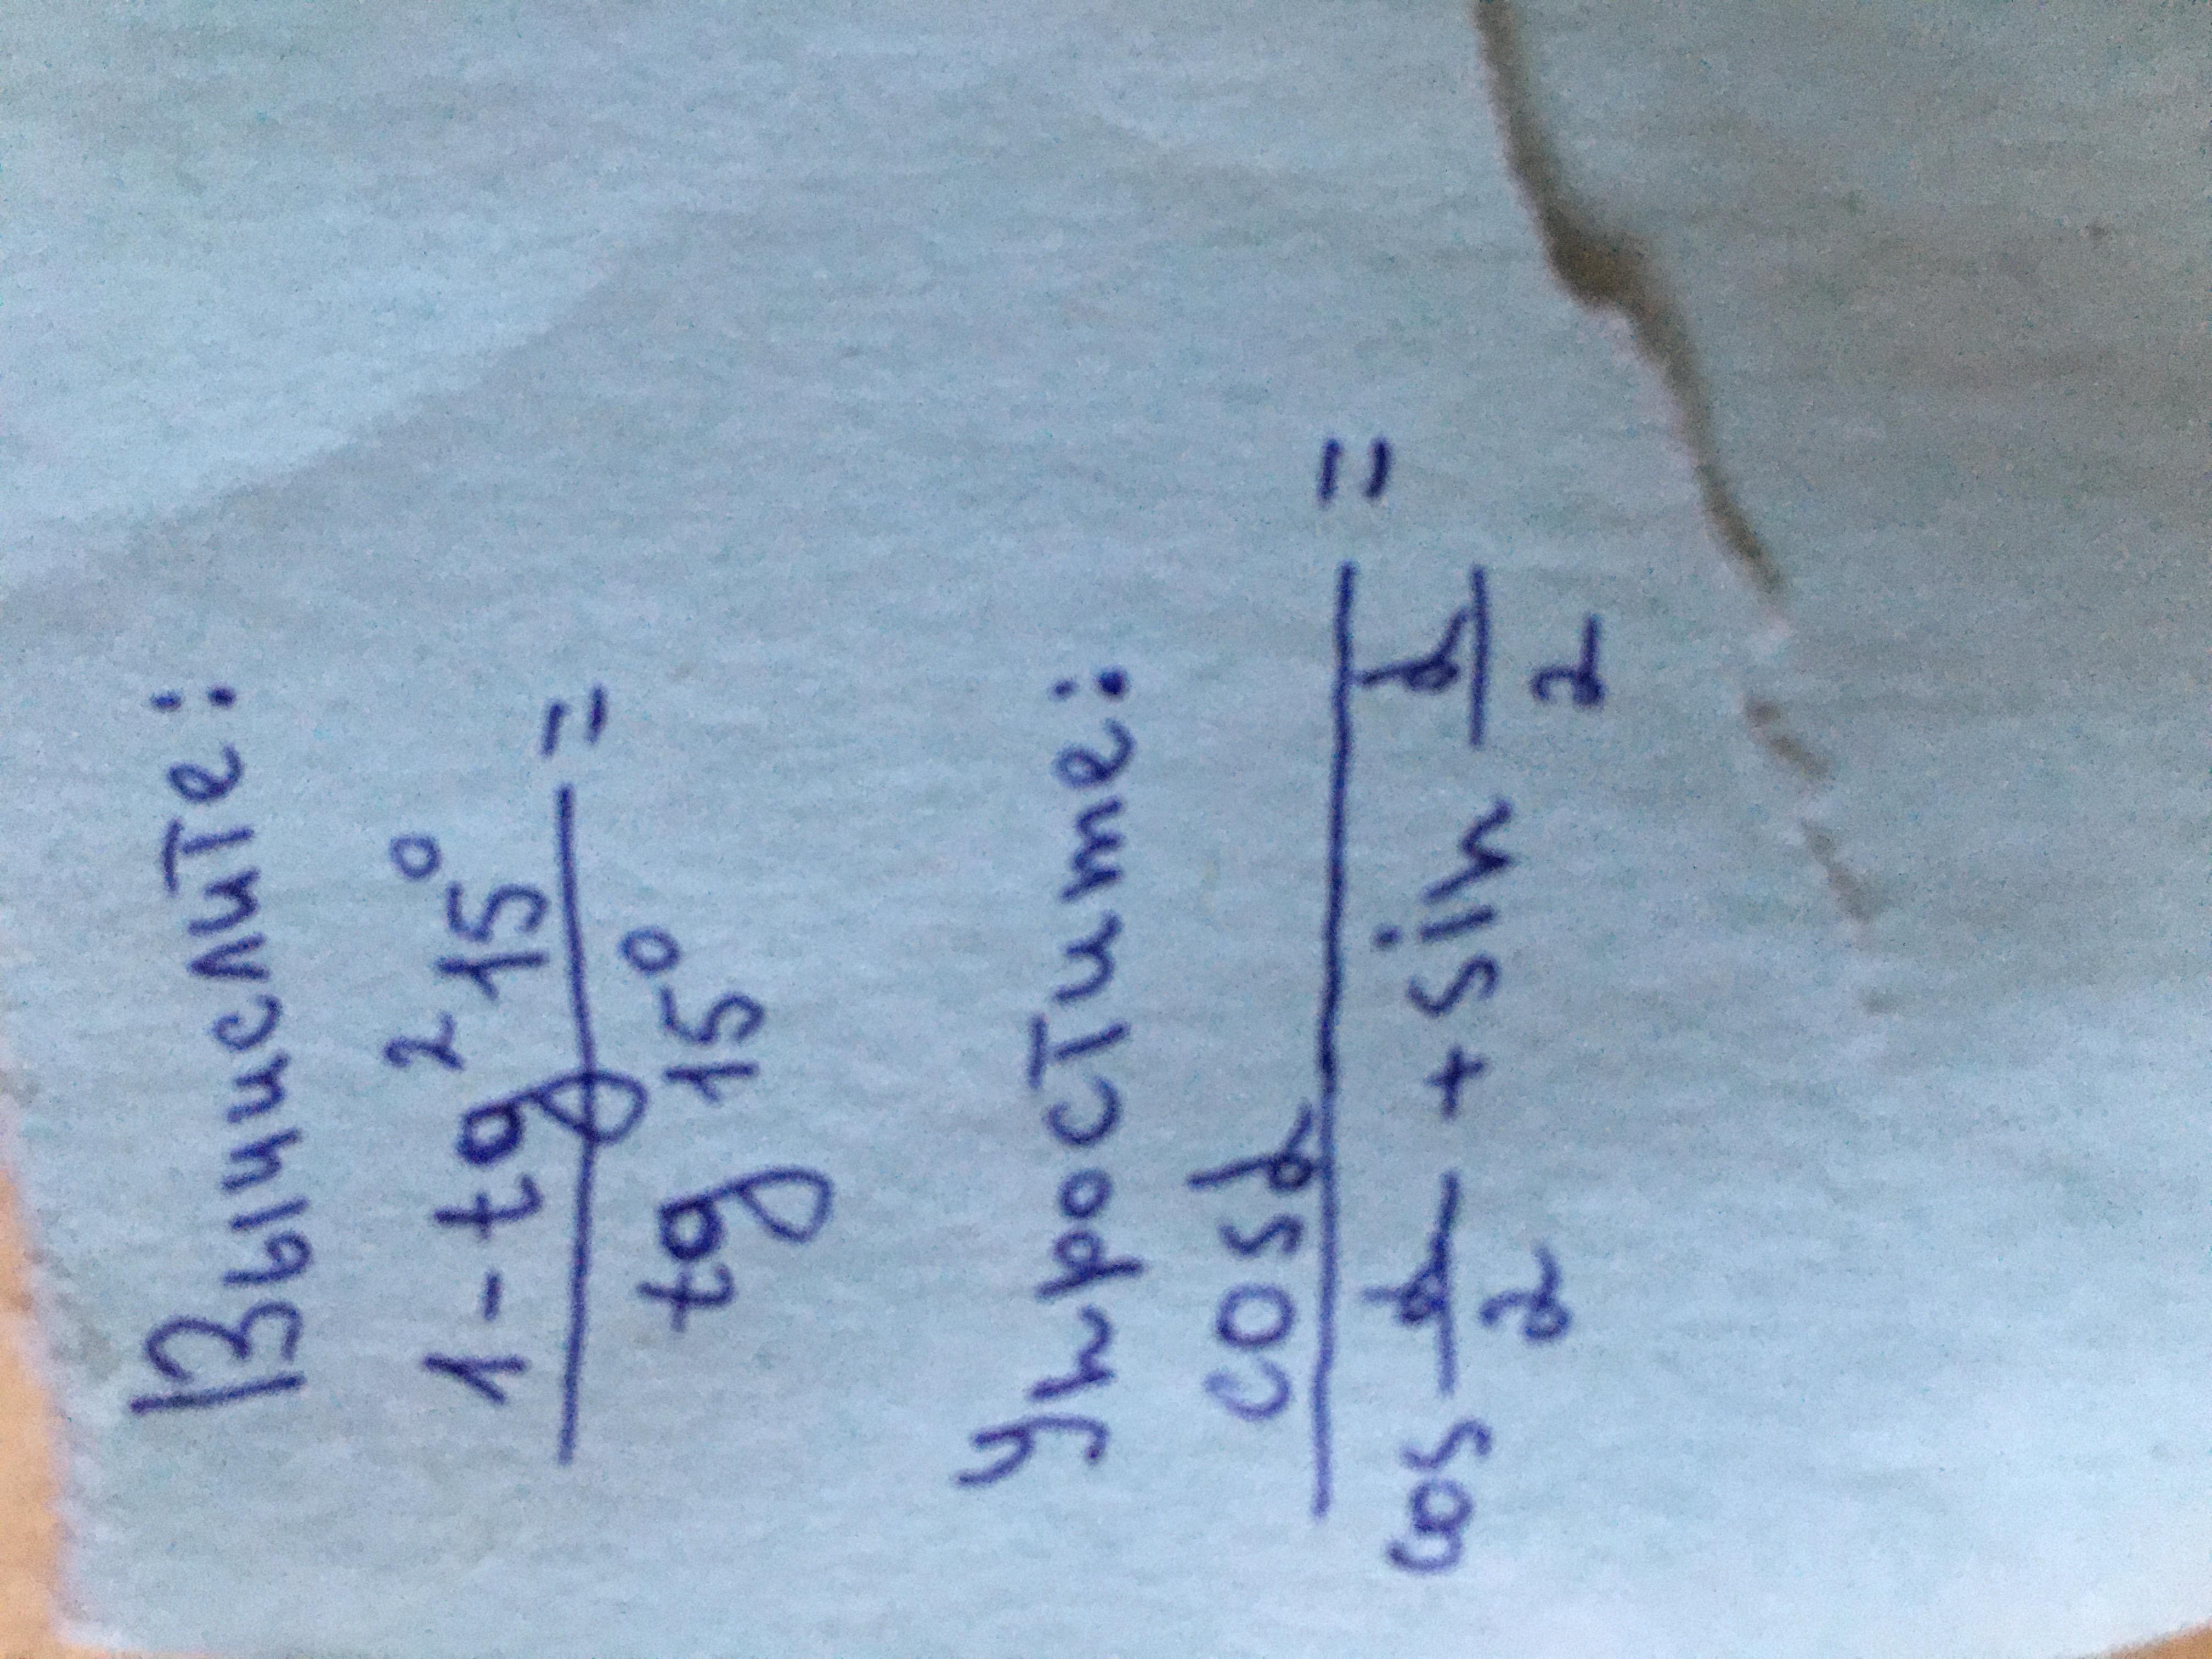 Вычислите:
1 - tg² 15° =
tg 15°
Упростите:
cos α =
cos α/2 + sin α/2